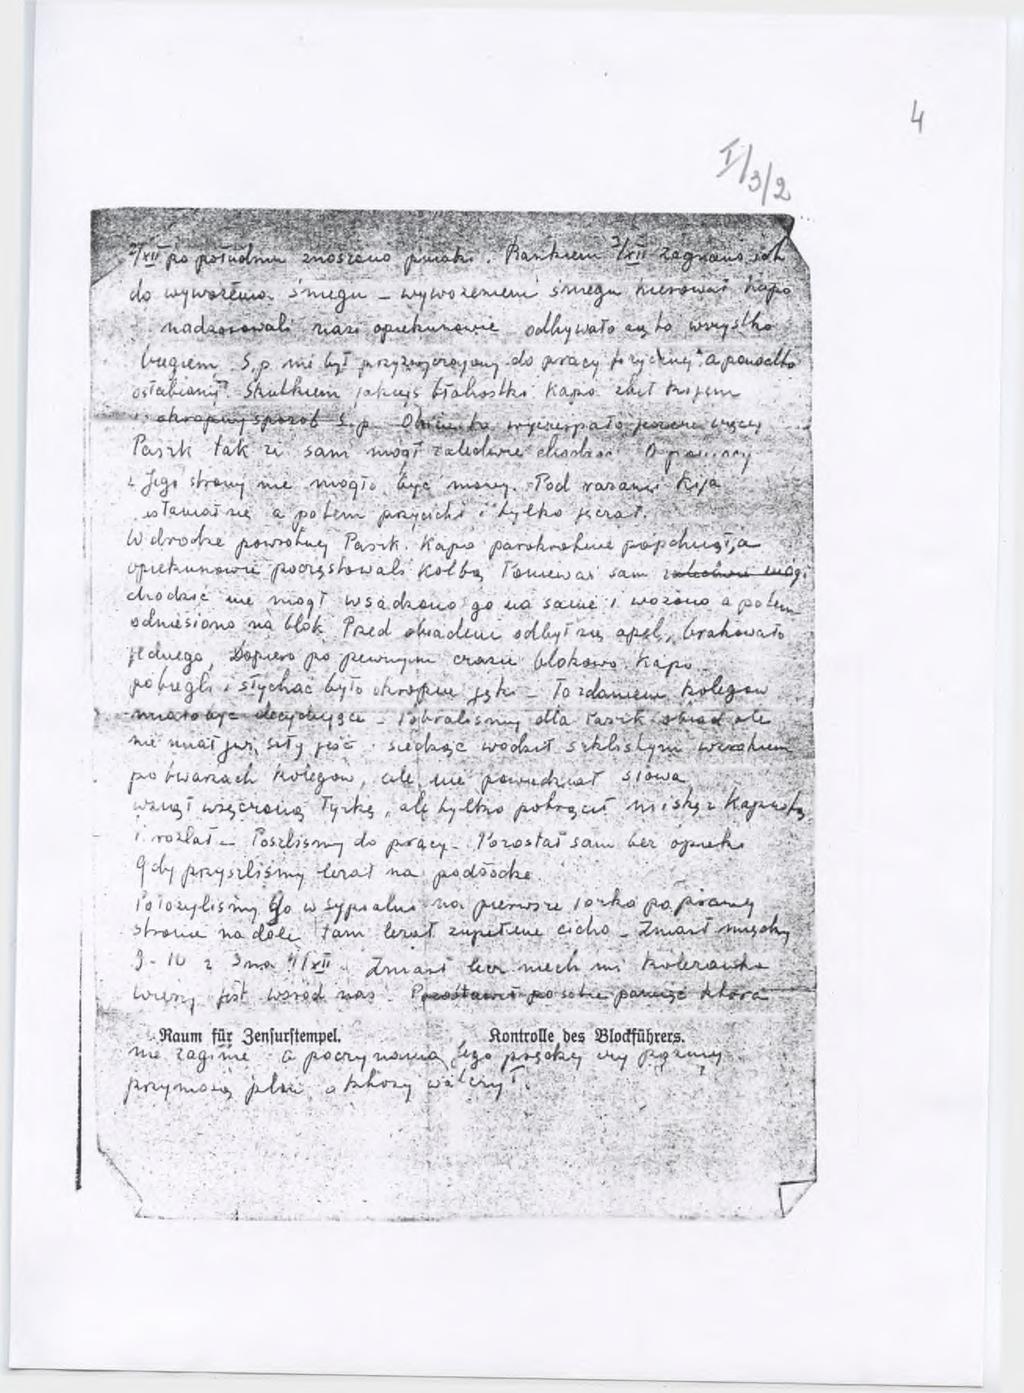 4
I/3/2
2/XII po południu znoszono pniaki. Rankiem 3/XII zagnano ich
do wywożenia śniegu – wywożeniem śniegu kierował kapo
nadzorowali nasi opiekunowie odbywało się to wszystko
biegiem. Ś.p. nie był przyzwyczajony do pracy fizycznej a ponadto
osłabiony. Skutkiem jakiejś błahostki Kapo zbił kijem
w okropny sposób Ś.p. wyczerpało jeszcze więcej
Paszk tak że sam mógł zaledwie chodzić. O
z Jego strony nie mogło być mowy. Pod razami kija
a potem przycichł i tylko jęczał.
W drodze powrotnej Paszk. Kapo parokrotnie popchnął, a
opiekunowie poczęstowali kolbą. Ponieważ sam zaledwie mógł
chodzić nie mógł wsadzono go na sanie i wożono a potem
odniesiono na blok. Przed obiadem odbył się apel, brakowało
jednego, Dopiero po pewnym czasie blokowo. Kapo
pobiegli i słychać było okropne jęki – To zdaniem kolegów
miało być decydujące – Pobraliśmy dla Paszk obiad ale
nie miał już siły jeść siedząc wodził szklistym wzrokiem
po twarzach kolegów, ale nie powiedział słowa
wziął wręczoną łyżkę, ale tylko potrącił miskę z kapustą
i rozlał – Poszliśmy do pracy – Pozostał sam bez opieki
Gdy przyszliśmy leżał na podłodze.
Położyliśmy Go w sypialni na pierwsze łóżko po prawej
stronie na dole tam leżał zupełnie cicho – Zmarł między
9-10 z 3 na 4/XII – Zmarł lecz niech mi koleżeńska
jest wśród nas. Pozostawił po sobie pamięć która
Raum für Zensurstempel. Kontrolle des Blockführers.
nie zaginie a poczynania Jego prędzej czy później
przyniosą plon o który walczył.